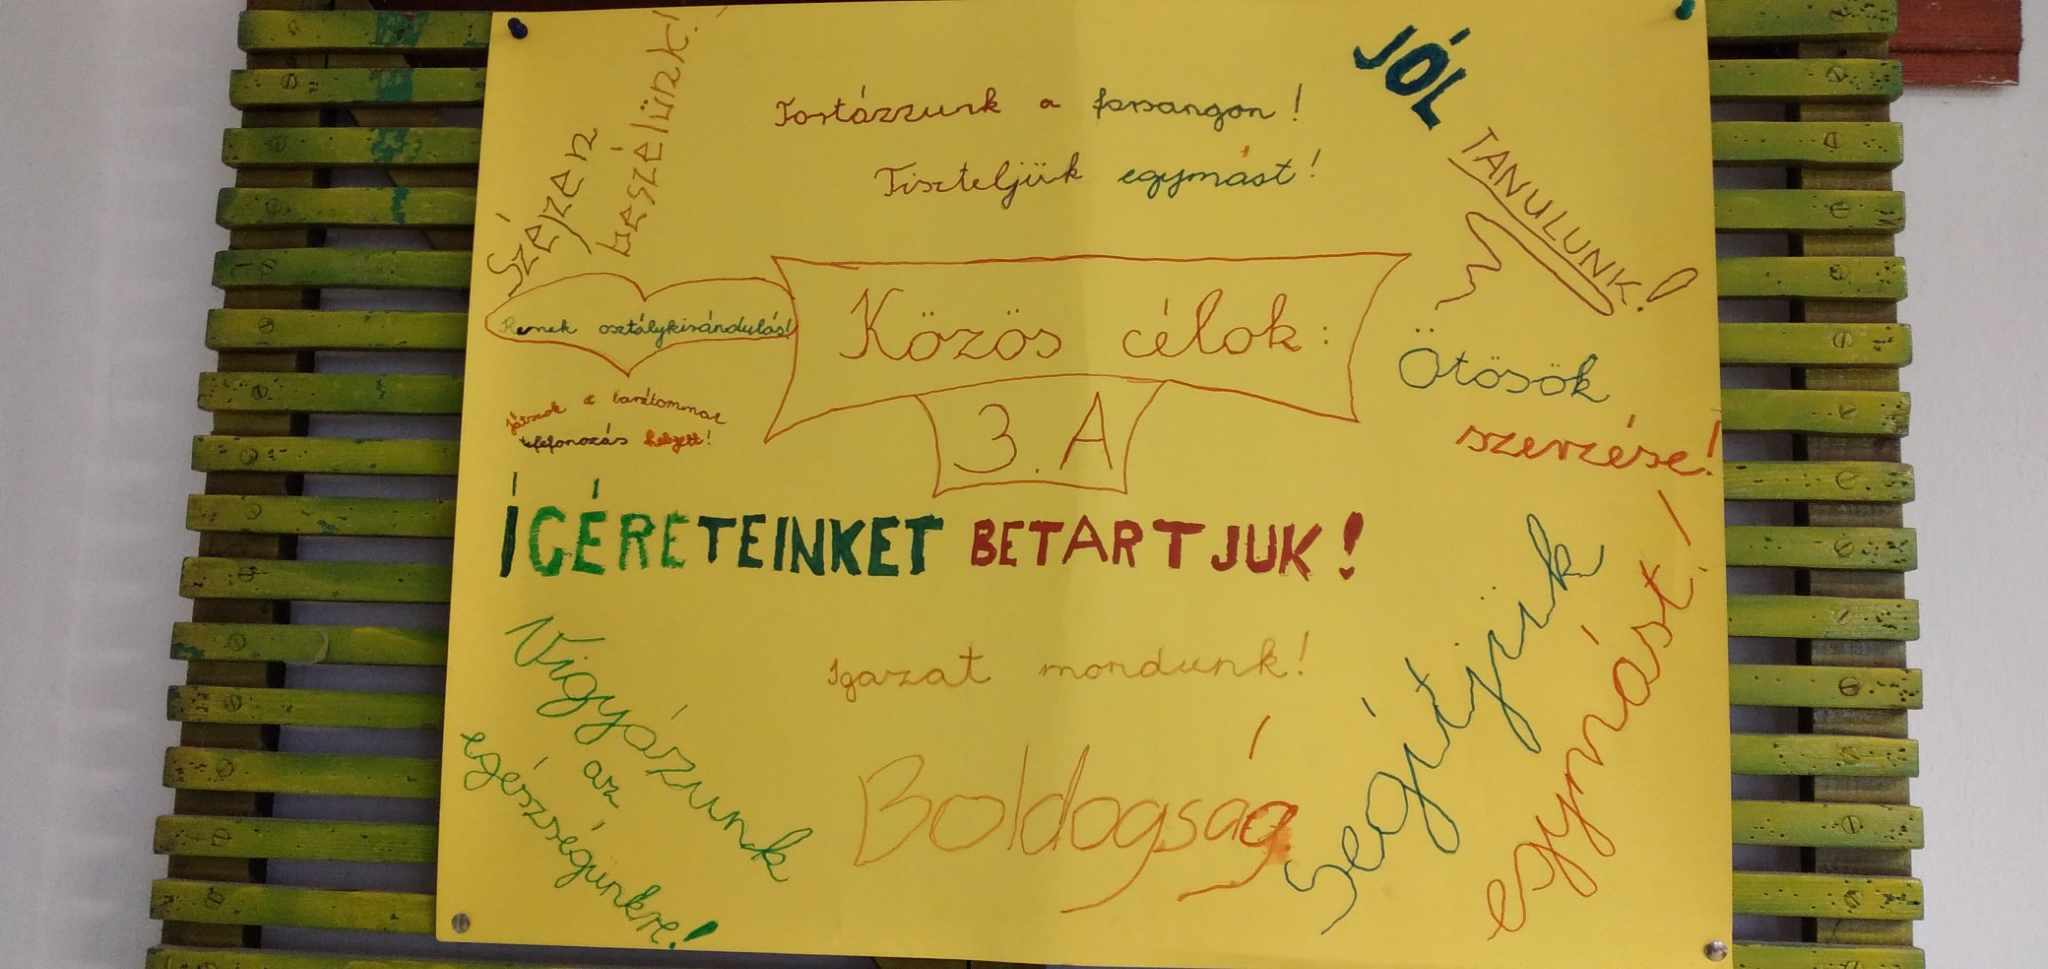 Szépen
beszélünk!
Tortázzunk a farsangon!
Tiszteljük egymást!
JÓL
TANULUNK!
Remek osztálykirándulás!
Közös célok:
3. A
Ötösök
szerzése!
Játszok a barátommal
telefonozás helyett!
ÍGÉRETEINKET BETARTJUK!
Igazat mondunk!
Vigyázunk
az
egészségünkre!
Boldogság
Segítjük
egymást!